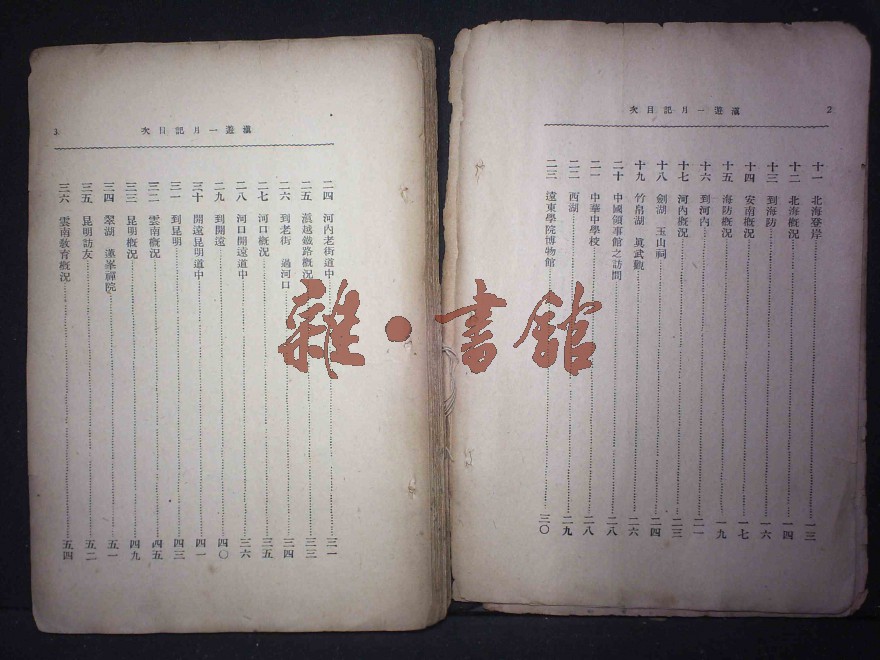 滇遊一月記目次
2
十一 北海登岸 一三
十二 北海概況 一四
十三 到海防 一六
十四 安南概況 一七
十五 海防概況 一九
十六 到河內 二一
十七 河內概況 二三
十八 劍湖 玉山祠 二四
十九 竹帛湖 眞武觀 二六
二十 中國領事館之訪問 二八
二一 中華中學校 二八
二二 西湖 二九
二三 遠東學院博物館 三〇
滇遊一月記目次
3
二四 河內老街道中 三一
二五 滇越鐵路概況 三三
二六 到老街 過河口 三四
二七 河口概況 三五
二八 河口開遠道中 三六
二九 到開遠 四〇
三十 開遠昆明道中 四一
三一 到昆明 四三
三二 雲南概況 四五
三三 昆明概況 四九
三四 翠湖 蓮峯禪院 五一
三五 昆明訪友 五二
三六 雲南教育概況 五四
雜·書館